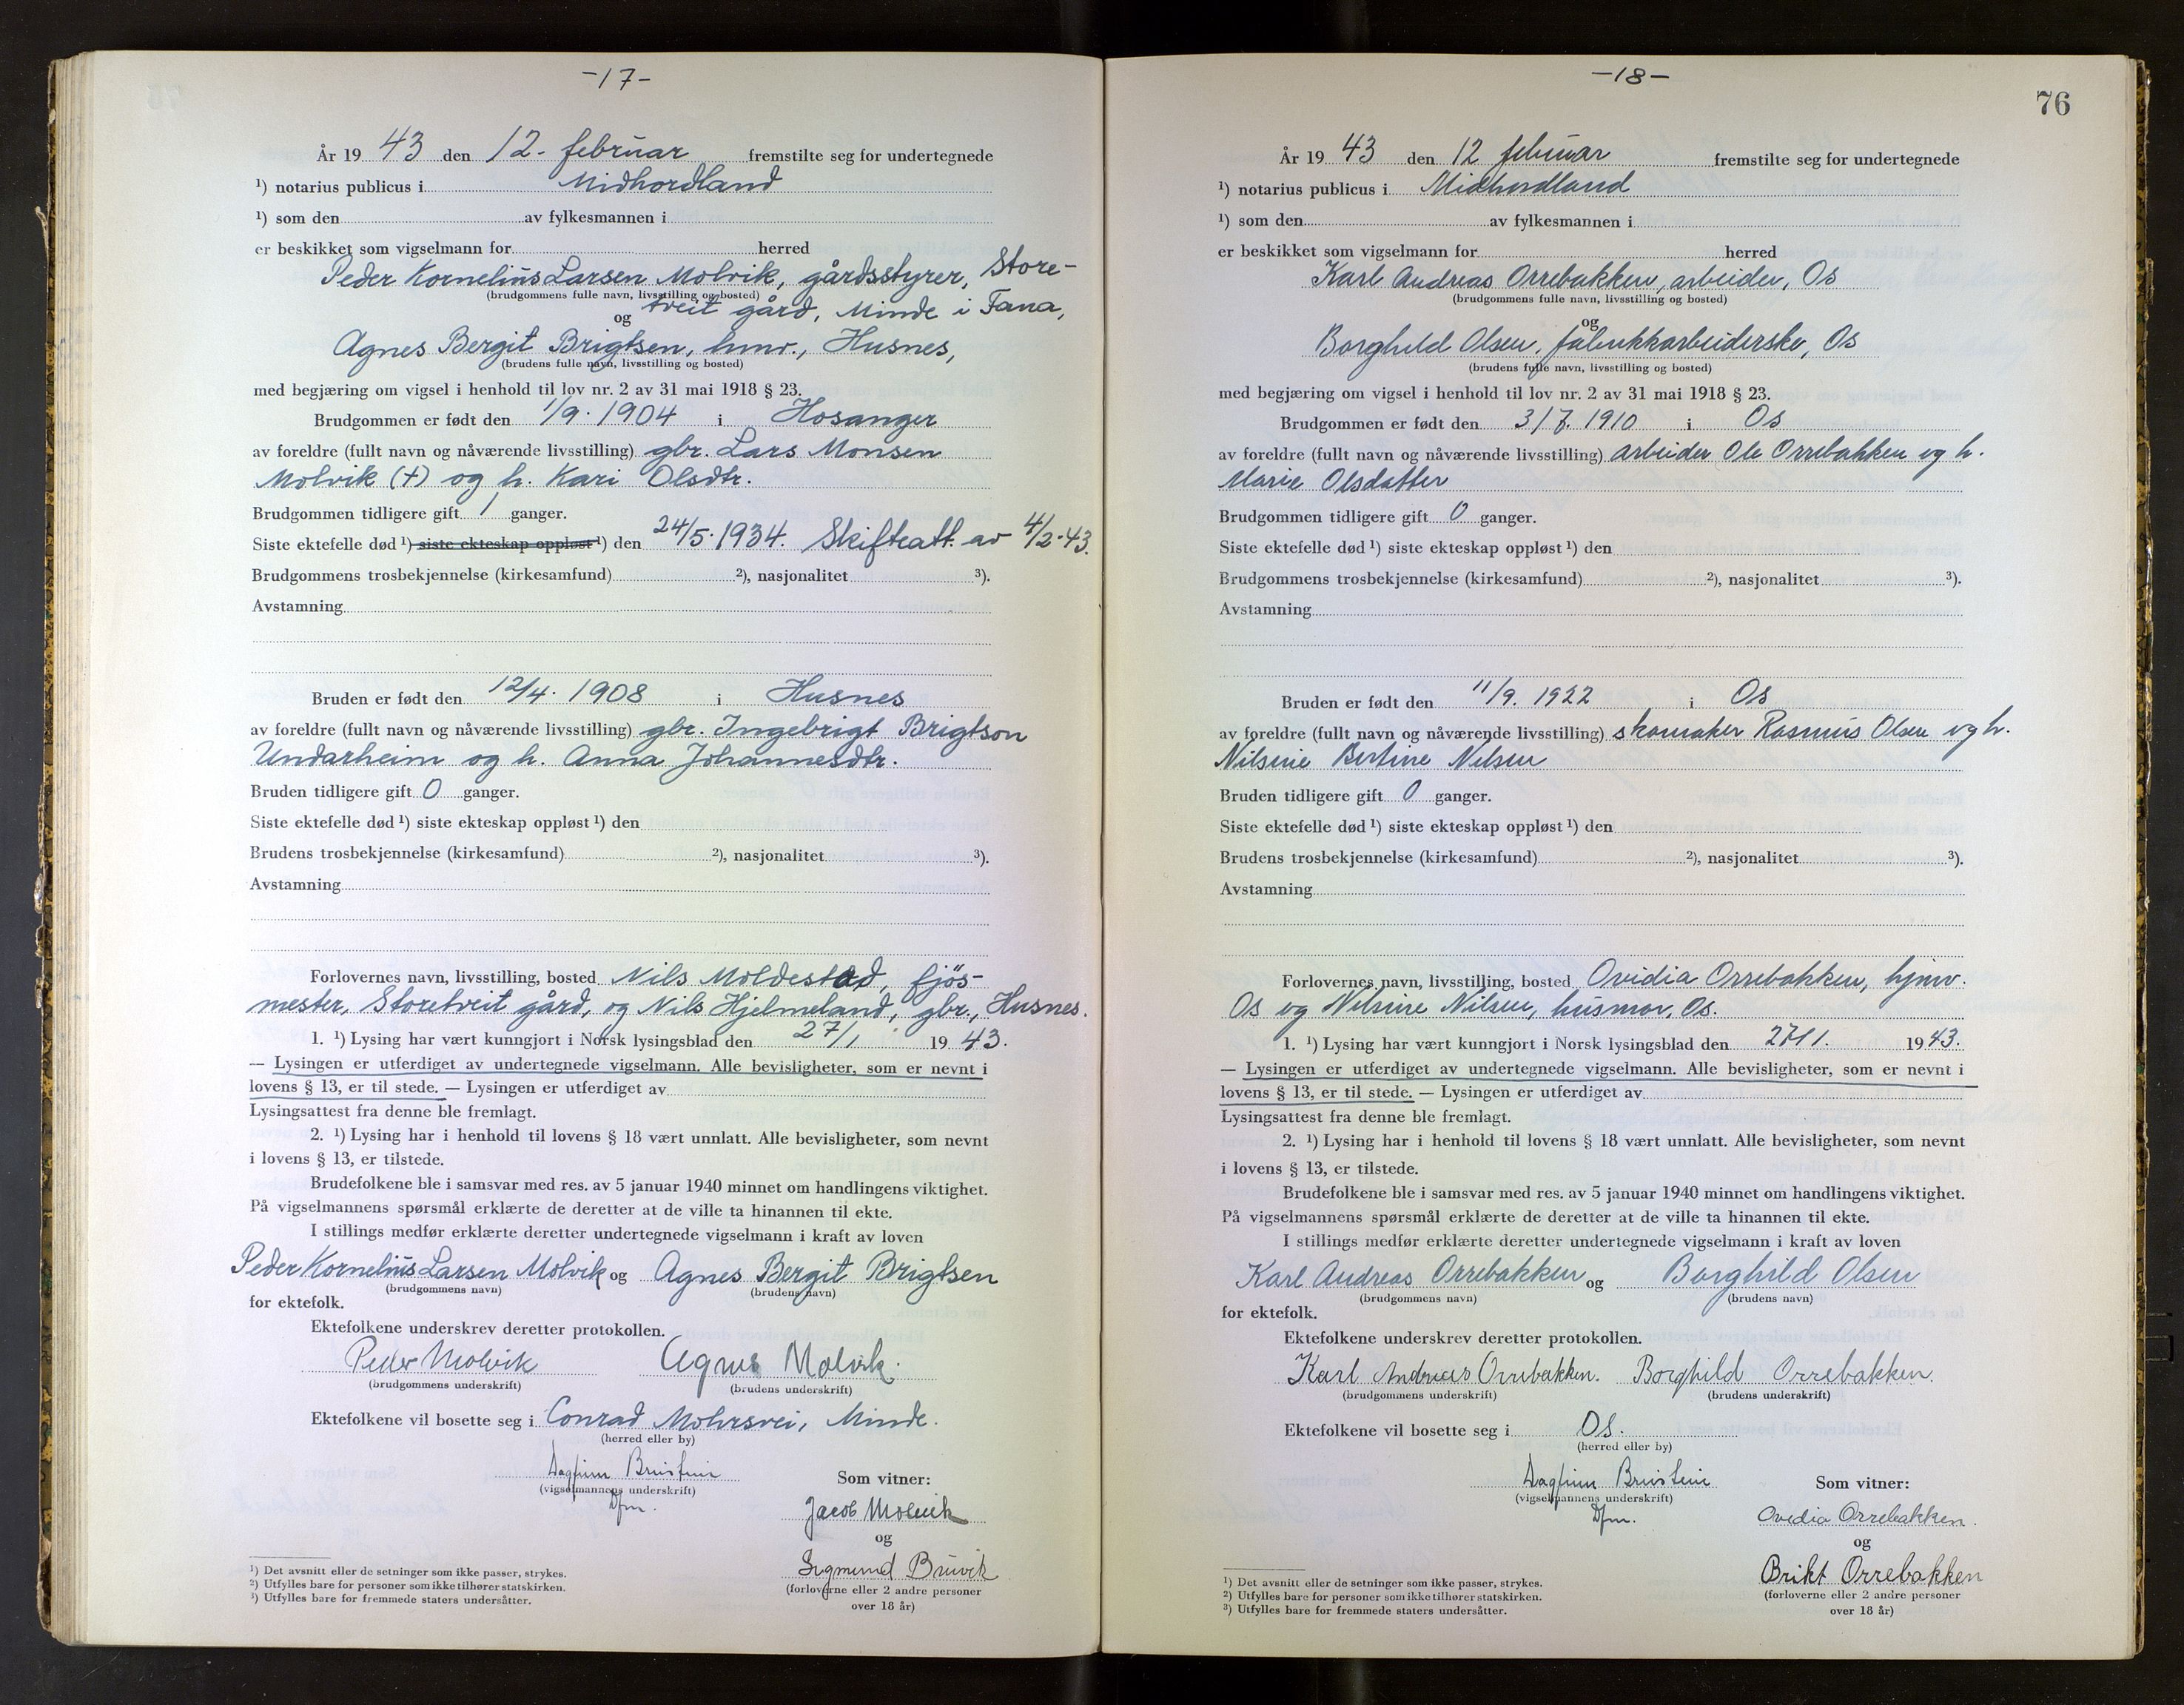 -17-
År 19 43 den 12. februar fremstilte seg for undertegnede
¹) notarius publicus i Midhordland
¹) som den av fylkesmannen i
er beskikket som vigselmann for herred
Peder Kornelius Larsen Molvik, gårdsstyrer, Store-
(brudgommens fulle navn, livsstilling og bosted)
tveit gård, Minde i Fana,
og
Agnes Bergit Brigtsen, hmv., Husnes,
(brudens fulle navn, livsstilling og bosted)
med begjæring om vigsel i henhold til lov nr. 2 av 31 mai 1918 § 23.
Brudgommen er født den 1/9. 1904 i Hosanger
av foreldre (fullt navn og nåværende livsstilling) gbr. Lars Monsen
Molvik (+) og h. Kari Olsdtr.
Brudgommen tidligere gift 1 ganger.
Siste ektefelle død ¹) siste ekteskap oppløst ¹) den 24/5. 1934. Skifteatt. av 4/2-43.
Brudgommens trosbekjennelse (kirkesamfund) ²), nasjonalitet ³).
Avstamning
Bruden er født den 12/4. 1908 i Husnes
av foreldre (fullt navn og nåværende livsstilling) gbr. Ingebrigt Brigtson
Undarheim og h. Anna Johannesdtr.
Bruden tidligere gift 0 ganger.
Siste ektefelle død ¹) siste ekteskap oppløst ¹) den
Brudens trosbekjennelse (kirkesamfund) ²), nasjonalitet ³).
Avstamning
Forlovernes navn, livsstilling, bosted Nils Moldestad, fjös-
mester, Storetveit gård, og Nils Hjelmeland, gbr., Husnes.
1. ¹) Lysing har vært kunngjort i Norsk lysingsblad den 27/1 19 43.
— Lysingen er utferdiget av undertegnede vigselmann. Alle bevisligheter, som er nevnt i
lovens § 13, er til stede. — Lysingen er utferdiget av
Lysingsattest fra denne ble fremlagt.
2. ¹) Lysing har i henhold til lovens § 18 vært unnlatt. Alle bevisligheter, som nevnt
i lovens § 13, er tilstede.
Brudefolkene ble i samsvar med res. av 5 januar 1940 minnet om handlingens viktighet.
På vigselmannens spørsmål erklærte de deretter at de ville ta hinannen til ekte.
I stillings medfør erklærte deretter undertegnede vigselmann i kraft av loven
Peder Kornelius Larsen Molvik og Agnes Bergit Brigtsen
(brudgommens navn) (brudens navn)
for ektefolk.
Ektefolkene underskrev deretter protokollen.
Peder Molvik Agnes Molvik.
(brudgommens underskrift) (brudens underskrift)
Ektefolkene vil bosette seg i Conrad Mohrsvei, Minde.
(herred eller by)
Dagfinn
(vigselmannens underskrift)
Dfm.
Som vitner:
Jacob Molvik
og
Sigmund Bruvik
(forloverne eller 2 andre personer
over 18 år)
¹) Det avsnitt eller de setninger som ikke passer, strykes.
²) Utfylles bare for personer som ikke tilhører statskirken.
³) Utfylles bare for fremmede staters undersåtter.
-18-
76
År 19 43 den 12 februar fremstilte seg for undertegnede
¹) notarius publicus i Midhordland
¹) som den av fylkesmannen i
er beskikket som vigselmann for herred
Karl Andreas Orrebakken, arbeider, Os
(brudgommens fulle navn, livsstilling og bosted)
og
Borghild Olsen, fabrikkarbeiderske, Os
(brudens fulle navn, livsstilling og bosted)
med begjæring om vigsel i henhold til lov nr. 2 av 31 mai 1918 § 23.
Brudgommen er født den 3/7. 1910 i Os
av foreldre (fullt navn og nåværende livsstilling) arbeider Ole Orrebakken og h.
Marie Olsdatter
Brudgommen tidligere gift 0 ganger.
Siste ektefelle død ¹) siste ekteskap oppløst ¹) den
Brudgommens trosbekjennelse (kirkesamfund) ²), nasjonalitet ³).
Avstamning
Bruden er født den 11/9. 1922 i Os
av foreldre (fullt navn og nåværende livsstilling) skomaker Rasmus Olsen og h.
Nilsine Bertine Nilsen
Bruden tidligere gift 0 ganger.
Siste ektefelle død ¹) siste ekteskap oppløst ¹) den
Brudens trosbekjennelse (kirkesamfund) ²), nasjonalitet ³).
Avstamning
Forlovernes navn, livsstilling, bosted Ovidia Orrebakken, hjmv.
Os og Nilsine Nilsen, husmor, Os.
1. ¹) Lysing har vært kunngjort i Norsk lysingsblad den 27/1. 19 43.
— Lysingen er utferdiget av undertegnede vigselmann. Alle bevisligheter, som er nevnt i
lovens § 13, er til stede. — Lysingen er utferdiget av
Lysingsattest fra denne ble fremlagt.
2. ¹) Lysing har i henhold til lovens § 18 vært unnlatt. Alle bevisligheter, som nevnt
i lovens § 13, er tilstede.
Brudefolkene ble i samsvar med res. av 5 januar 1940 minnet om handlingens viktighet.
På vigselmannens spørsmål erklærte de deretter at de ville ta hinannen til ekte.
I stillings medfør erklærte deretter undertegnede vigselmann i kraft av loven
Karl Andreas Orrebakken og Borghild Olsen
(brudgommens navn) (brudens navn)
for ektefolk.
Ektefolkene underskrev deretter protokollen.
Karl Andreas Orrebakken. Borghild Orrebakken.
(brudgommens underskrift) (brudens underskrift)
Ektefolkene vil bosette seg i Os.
(herred eller by)
Dagfinn
(vigselmannens underskrift)
Dfm.
Som vitner:
Ovidia Orrebakken.
og
Brikt Orrebakken
(forloverne eller 2 andre personer
over 18 år)
¹) Det avsnitt eller de setninger som ikke passer, strykes.
²) Utfylles bare for personer som ikke tilhører statskirken.
³) Utfylles bare for fremmede staters undersåtter.